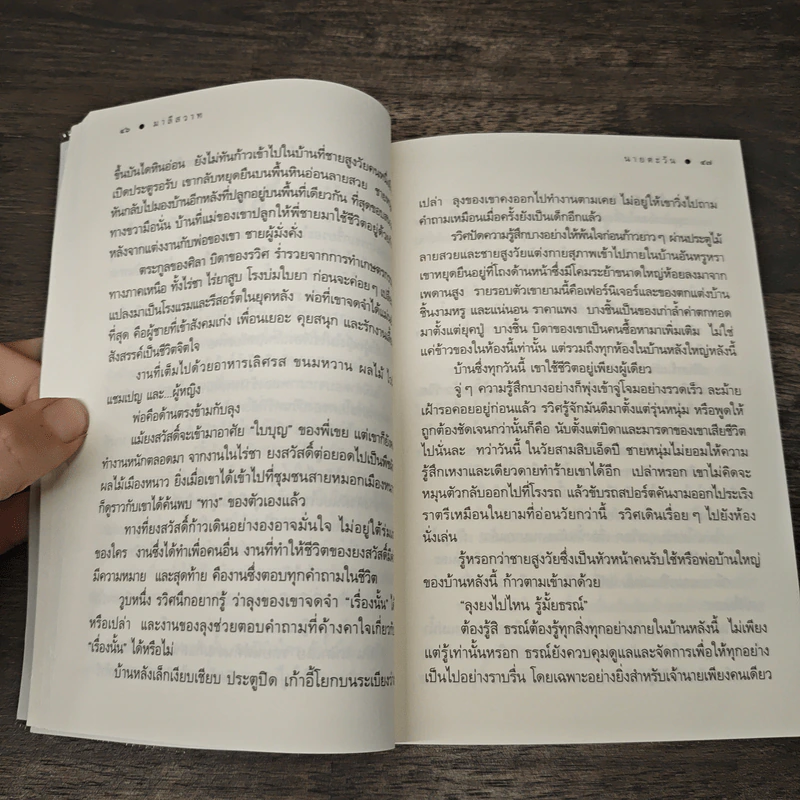 ๔๖ ● มาลีสวาท
ขึ้นบันไดหินอ่อน ยังไม่ทันก้าวเข้าไปในบ้านที่ชายสูงวัยคนหนึ่ง
เปิดประตูรอรับ เขากลับหยุดยืนบนพื้นหินอ่อนลายสวย
หันกลับไปมองบ้านอีกหลังที่ปลูกอยู่บนพื้นที่เดียวกัน ที่สุดขอบ
ทางขวามือนั่น บ้านที่แม่ของเขาปลูกให้พี่ชายมาใช้ชีวิตอยู่ด้วย
หลังจากแต่งงานกับพ่อของเขา ชายผู้มั่งคั่ง
ตระกูลของศิลา บิดาของรวิศ ร่ำรวยจากการทำเกษตร
ทางภาคเหนือ ทั้งไร่ชา ไร่ยาสูบ โรงบ่มใบยา ก่อนจะค่อยๆ
แปลงมาเป็นโรงแรมและรีสอร์ตในยุคหลัง พ่อที่เขาจดจำได้
ที่สุด คือผู้ชายที่เข้าสังคมเก่ง เพื่อนเยอะ คุยสนุก และรักงาน
สังสรรค์เป็นชีวิตจิตใจ
งานที่เต็มไปด้วยอาหารเลิศรส ขนมหวาน ผลไม้
แชมเปญ และ...ผู้หญิง
พ่อคือด้านตรงข้ามกับลุง
แม้ยงสวัสดิ์จะเข้ามาอาศัย “ใบบุญ” ของพี่เขย แต่เขาก็
ทำงานหนักตลอดมา จากงานในไร่ชา ยงสวัสดิ์ต่อยอดไปเป็น
ผลไม้เมืองหนาว ยิ่งเมื่อเขาได้เข้าไปที่ชุมชนสายหมอกเมือง
ก็ดูราวกับเขาได้ค้นพบ “ทาง” ของตัวเองแล้ว
ทางที่ยงสวัสดิ์ก้าวเดินอย่างองอาจมั่นใจ ไม่อยู่ใต้ร่ม
ของใคร งานซึ่งได้ทำเพื่อคนอื่น งานที่ทำให้ชีวิตของยงสวัสดิ์
มีความหมาย และสุดท้าย คืองานซึ่งตอบทุกคำถามในชีวิต
วูบหนึ่ง รวิศนึกอยากรู้ ว่าลุงของเขาจดจำ “เรื่องนั้น” ได้
หรือเปล่า และงานของลุงช่วยตอบคำถามที่ค้างคาใจเกี่ยวกับ
“เรื่องนั้น” ได้หรือไม่
บ้านหลังเล็กเงียบเชียบ ประตูปิด เก้าอี้โยกบนระเบียง
นายตะวัน ● ๔๗
เปล่า ลุงของเขาคงออกไปทำงานตามเคย ไม่อยู่ให้เขาวิ่งไปถาม
คำถามเหมือนเมื่อครั้งยังเป็นเด็กอีกแล้ว
รวิศปัดความรู้สึกบางอย่างให้พ้นใจก่อนก้าวยาวๆ ผ่านประตูไม้
ลายสวยและชายสูงวัยแต่งกายสุภาพเข้าไปภายในบ้านอันหรูหรา
เขาหยุดยืนอยู่ที่โถงด้านหน้าซึ่งมีโคมระย้าขนาดใหญ่ห้อยลงมาจาก
เพดานสูง รายรอบตัวเขายามนี้คือเฟอร์นิเจอร์และของตกแต่งบ้าน
ชิ้นงามหรู และแน่นอน ราคาแพง บางชิ้นเป็นของเก่าล้ำค่าตกทอด
มาตั้งแต่ยุคปู่ บางชิ้น บิดาของเขาเป็นคนซื้อหามาเพิ่มเติม ไม่ใช่
แค่ข้าวของในห้องนี้เท่านั้น แต่รวมถึงทุกห้องในบ้านหลังใหญ่หลังนี้
บ้านซึ่งทุกวันนี้ เขาใช้ชีวิตอยู่เพียงผู้เดียว
จู่ๆ ความรู้สึกบางอย่างก็พุ่งเข้าจู่โจมอย่างรวดเร็ว ละม้าย
เฝ้ารอคอยอยู่ก่อนแล้ว รวิศรู้จักมันดีมาตั้งแต่รุ่นหนุ่ม หรือพูดให้
ถูกต้องชัดเจนกว่านั้นก็คือ นับตั้งแต่บิดาและมารดาของเขาเสียชีวิต
ไปนั่นละ ทว่าวันนี้ ในวัยสามสิบเอ็ดปี ชายหนุ่มไม่ยอมให้ความ
รู้สึกเหงาและเดียวดายทำร้ายเขาได้อีก เปล่าหรอก เขาไม่คิดจะ
หมุนตัวกลับออกไปที่โรงรถ แล้วขับรถสปอร์ตคันงามออกไประเริง
ราตรีเหมือนในยามที่อ่อนวัยกว่านี้ รวิศเดินเรื่อยๆ ไปยังห้อง
นั่งเล่น
รู้หรอกว่าชายสูงวัยซึ่งเป็นหัวหน้าคนรับใช้หรือพ่อบ้านใหญ่
ของบ้านหลังนี้ ก้าวตามเข้ามาด้วย
“ลุงยงไปไหน รู้มั้ยธรณ์”
ต้องรู้สิ ธรณ์ต้องรู้ทุกสิ่งทุกอย่างภายในบ้านหลังนี้ ไม่เพียง
แต่รู้เท่านั้นหรอก ธรณ์ยังควบคุมดูแลและจัดการเพื่อให้ทุกอย่าง
เป็นไปอย่างราบรื่น โดยเฉพาะอย่างยิ่งสำหรับเจ้านายเพียงคนเดียว